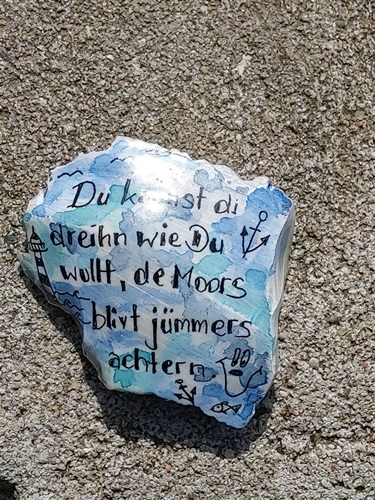 Du kannst di
dreihn wie Du
wullt, de Moors
blivt jümmers
achtern.